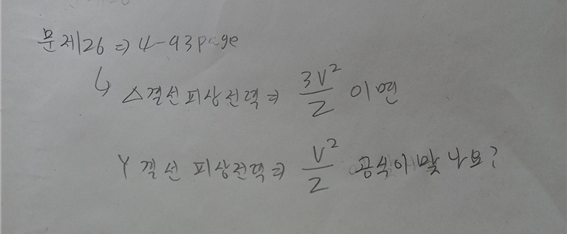 문제26 ⇒ 4-93page
↳ △결선 피상전력 ⇒ 3V²/Z 이면
Y 결선 피상전력 ⇒ V²/Z 공식이 맞나요?